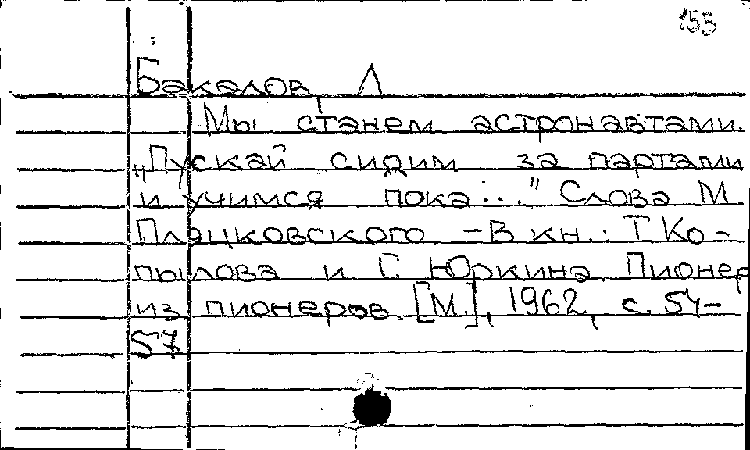 155
Бакалов, Л
Мы станем астронавтами.
„Пускай сидим за партами
и учимся пока..." Слова М
Пляцковского – В кн.: Т. Ко-
пылова и Г. Юркина. Пионер
из пионеров. [М.], 1962, с. 54–
57